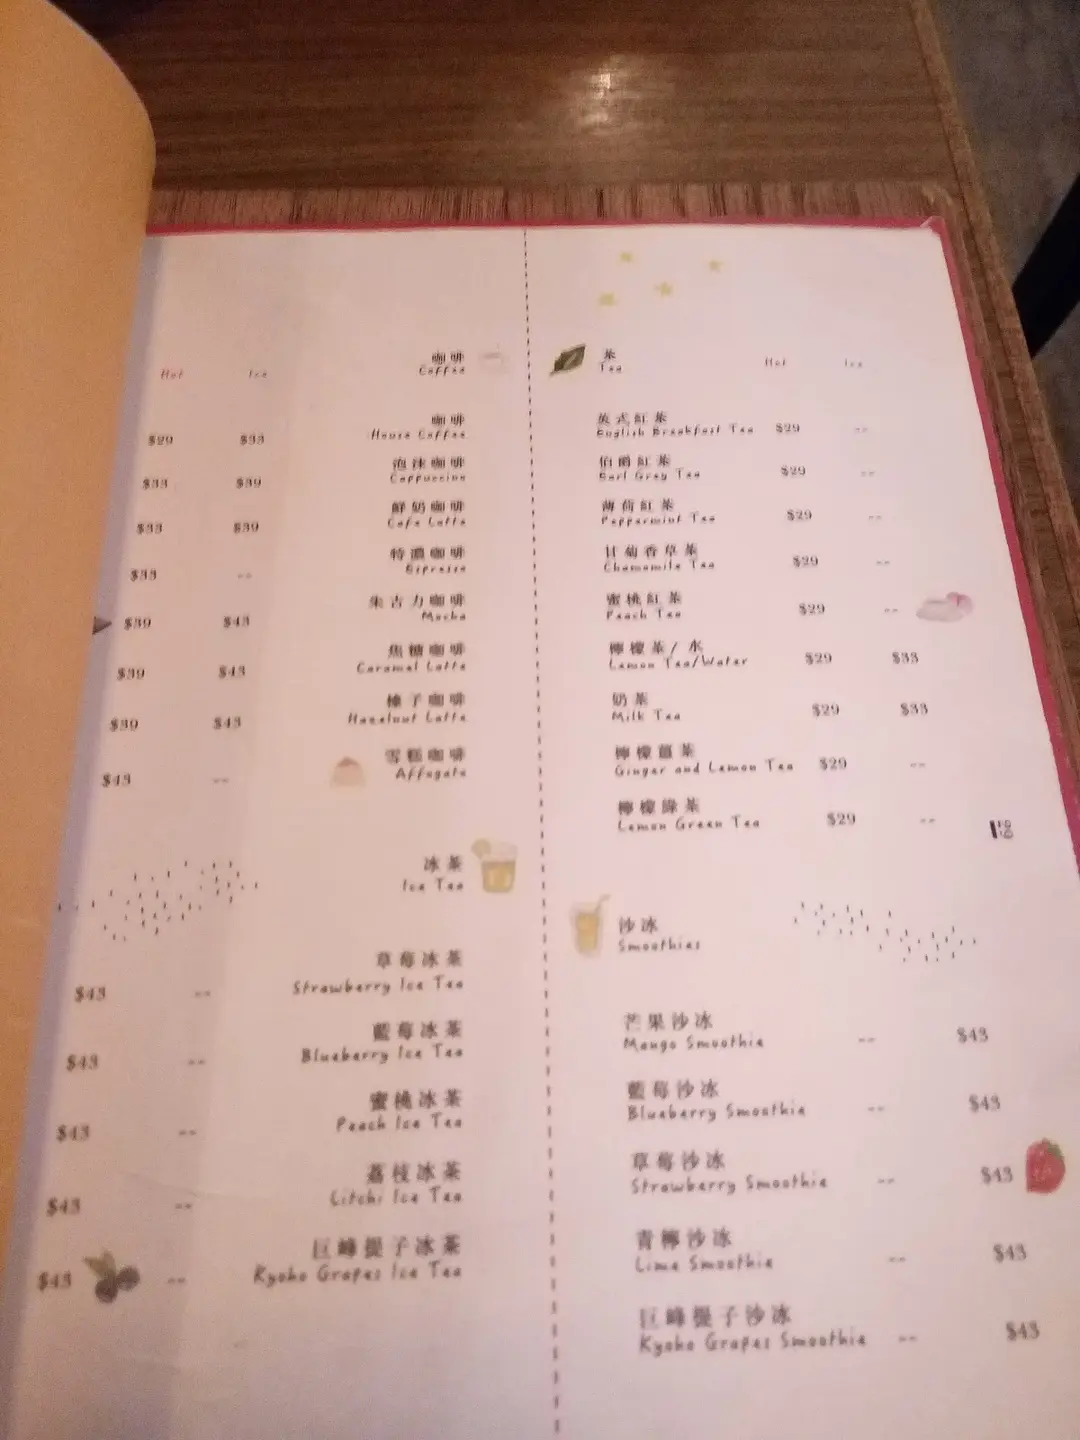 Hot Ice 咖啡
Coffee
咖啡
$29 $33 House Coffee
泡沫咖啡
$33 $39 Cappuccino
鮮奶咖啡
$33 $39 Cafe Latte
特濃咖啡
$33 -- Espresso
朱古力咖啡
$39 $43 Mocha
焦糖咖啡
$39 $43 Caramel Latte
榛子咖啡
$39 $43 Hazelnut Latte
雪糕咖啡
$43 -- Affogato
冰茶
Ice Tea
草莓冰茶
$43 -- Strawberry Ice Tea
藍莓冰茶
$43 -- Blueberry Ice Tea
蜜桃冰茶
$43 -- Peach Ice Tea
荔枝冰茶
$43 -- Litchi Ice Tea
巨峰提子冰茶
$43 -- Kyoho Grapes Ice Tea
茶
Tea Hot Ice
英式紅茶
English Breakfast Tea $29 --
伯爵紅茶
Earl Grey Tea $29 --
薄荷紅茶
Peppermint Tea $29 --
甘菊香草茶
Chamomile Tea $29 --
蜜桃紅茶
Peach Tea $29 --
檸檬茶/水
Lemon Tea/Water $29 $33
奶茶
Milk Tea $29 $33
檸檬薑茶
Ginger and Lemon Tea $29 --
檸檬綠茶
Lemon Green Tea $29 --
沙冰
Smoothies
芒果沙冰
Mango Smoothie -- $43
藍莓沙冰
Blueberry Smoothie -- $43
草莓沙冰
Strawberry Smoothie -- $43
青檸沙冰
Lime Smoothie -- $43
巨峰提子沙冰
Kyoho Grapes Smoothie -- $43